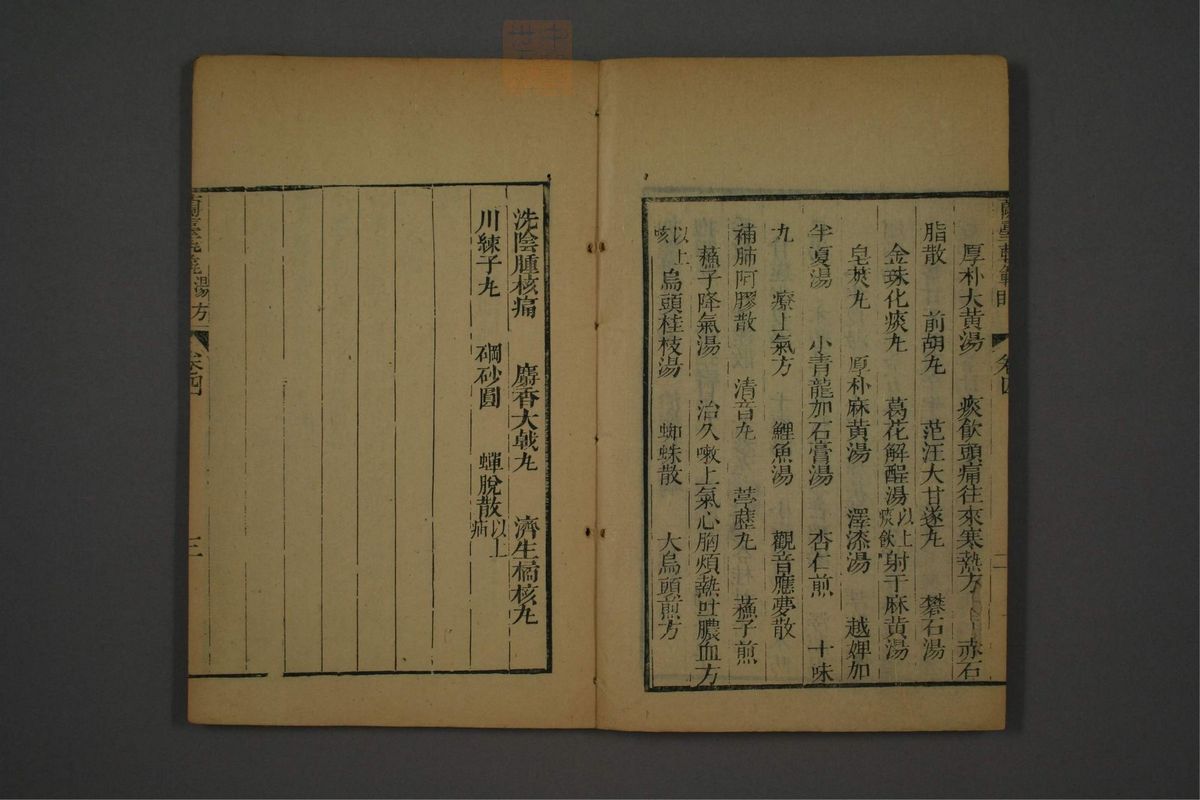 蘭臺軌範目 卷四 二
厚朴大黃湯 痰飲頭痛往來寒熱方 赤石
脂散 前胡丸 范汪大甘遂丸 礬石湯
金珠化痰丸 葛花解酲湯以上痰飲 射干麻黃湯
皂莢丸 厚朴麻黃湯 澤漆湯 越婢加
半夏湯 小青龍加石膏湯 杏仁煎 十味
丸 療上氣方 鯉魚湯 觀音應夢散
補肺阿膠散 清音丸 葶藶丸 蘓子煎
蘓子降氣湯 治久嗽上氣心胸煩熱吐膿血方
以上咳 烏頭桂枝湯 蜘蛛散 大烏頭煎方
洗陰腫核痛 麝香大戟丸 濟生橘核丸
川練子丸 碙砂圓 蟬脫散以上疝
湯方 卷四 三